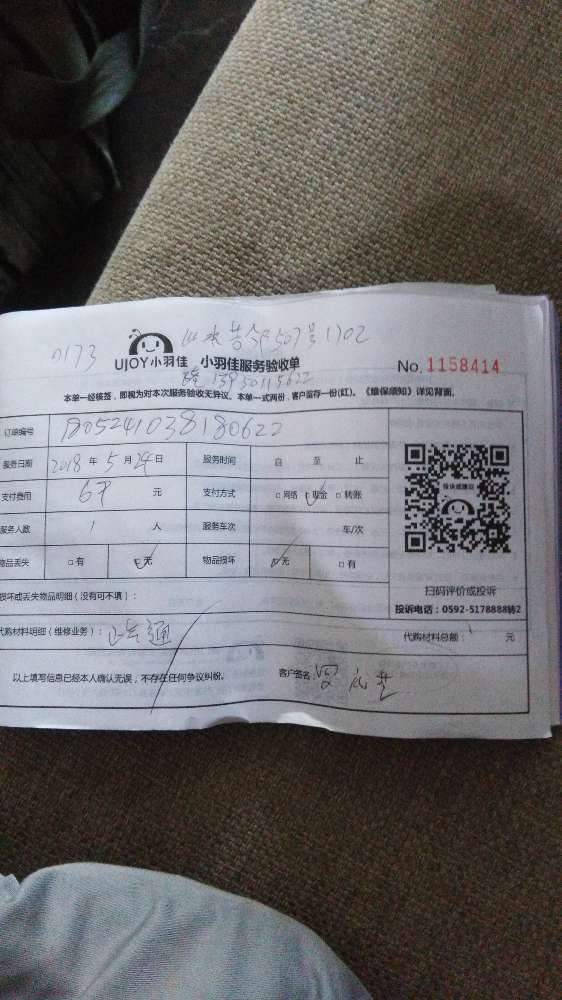 0173
507号1702
UJOY小羽佳 小羽佳服务验收单 No. 1158414
13950115622
本单一经核签，即视为对本次服务验收无异议。本单一式两份，客户留存一份(红)。《维保须知》详见背面。
订单编号 1805241038180622
服务日期 2018 年 5 月 24 日 服务时间 自 至 止
支付费用 元 支付方式 □网络 □现金 □转账
服务人数 1 人 服务车次 车/次
物品丢失 □有 □无 物品损坏 □无 □有
投诉或建议
扫码评价或投诉
投诉电话：0592-5178888转2
损坏或丢失物品明细（没有可不填）：
代购材料明细（维修业务）： 通 代购材料总额： 元
以上填写信息已经本人确认无误，不存在任何争议纠纷。 客户签名：